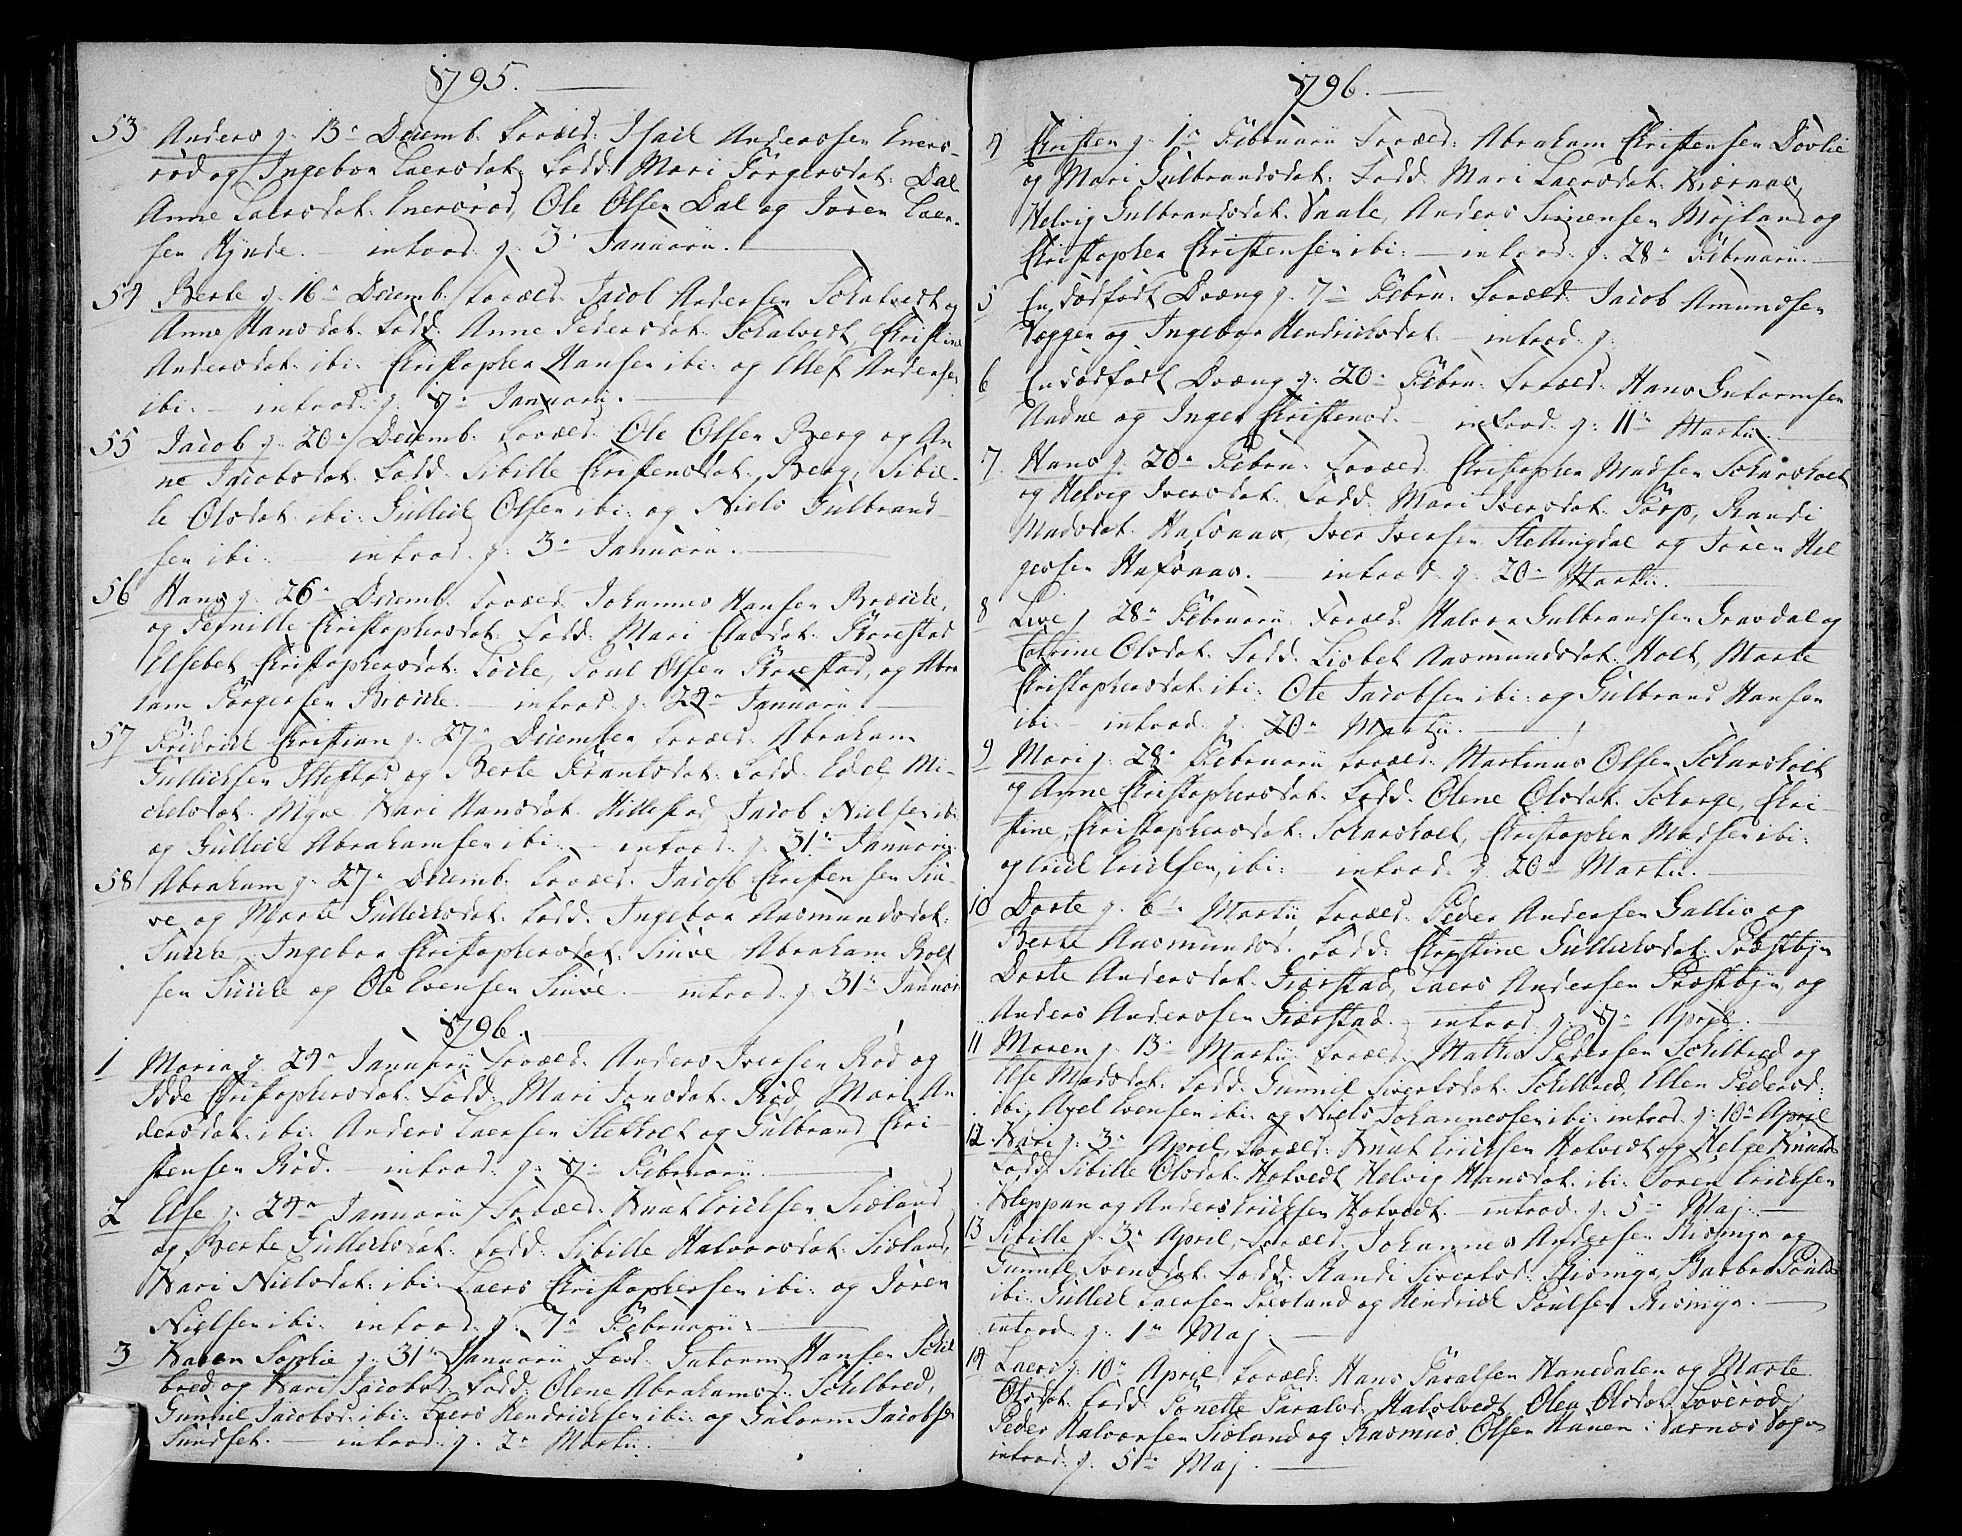 1795.
53 Anders d. 13de Decemb. Foræld: Isach Anderssen Eners-
rød og Ingebor Laersdat. Fadd: Mari Jørgensdat: Dal
Anne Laersdat: Enersrød, Ole Olsen Dal og Søren Laer-
sen Hynde. — introd: d. 3de Januarii. —
54 Berte d. 16de Decemb. Foræld: Jacob Andersen Schalvedt og
Anne Hansdat: Fadd: Anne Pedersdat: Schalvedt, Christine
Andersdat: ibi: Christopher Hansen ibi: og Ellef Andersen
ibi: — introd: d. 8de Januarii. —
55 Jacob d. 20de Decemb. Foræld: Ole Olsen Berg og An-
ne Jacobsdat: Fadd: Sibille Christensdat: Berg, Sibil-
le Olsdat: ibi: Gullich Olsen ibi: og Niels Gulbrand-
sen ibi: — introd: d. 3de Januarii. —
56 Hans d. 26de Decemb. Foræld: Johannes Hansen Brecke,
og Pernille Christophersdat: Fadd: Mari Olsdat:
Elsebet Christophersdat: Poul Olsen og Abra
ham Jørgensen Brecke. — introd: d. 24de Januarii. —
57 Fridrich Christian d. 27de Decembr: Foræld: Abraham
Gullichsen og Berte Frantsdat: Fadd: Edel Mi-
chelsdat: Myre, Kari Hansdat: Hillestad, Jacob Nielsen ibi:
og Gullich Abrahamsen ibi: — introd: d. 31te Januarii
58 Abraham d. 27de Decemb. Foræld: Jacob Christensen Sun-
ve og Marte Gullichsdat: Fadd: Ingebor Aasmundsdat:
Ingebor Christophersdat: Abraham Rolf
sen og Ole Evensen — introd: d. 31te Januar
1796.
1 Maria d. 24de Januarii Foræld: Anders Iversen Rød og
Idde Christophersdat: Fadd: Mari Jonsdat: Rød, Mari An
dersdat: ibi: Anders Laersen Stokholt og Gulbrand Chri-
stensen Rød. — introd: d. 8de Februarii. —
2 Else d. 24de Januarii, Foræld: Knut Erichsen Sioland
og Berte Gullichsdat: Fadd: Sibille Halvorsdat: Sioland,
Kari Nielsdat: ibi: Laers Christophersen ibi: og Søren
Nielsen ibi: introd: d. 7de Februarii. —
3 Karen Sophie d. 31te Januarii Foræld: Gutorm Hansen Schil
bred og Kari Jacobsd: Fadd: Olene Abrahamsd: Schilbred,
Gunnil Jacobsd: ibi: Laers Hendrichsen ibi: og Gutorm Jacobsen
Sundset. — introd: d. 2de Martii.
1796. —
4 Christen d. 1te Februarii Foræld: Abraham Christensen Dovlie
og Mari Gulbrandsdat: Fadd: Mari Laersdat: Kiærnaas,
Helvig Gulbrandsdat: Vaale, Anders Sørensen Møjland og
Christopher Christensen ibi: — introd: d. 28de Februarii. —
5 En dødfødt Dreng d. 7de Febru: Foræld: Jacob Amundsen
Væggen og Ingebor Hendrichsdat: — introd: d.
6 En dødfødt Dreng d. 20de Febru: Foræld: Hans Gutormsen
Aadne og Inger Christensd: — introd: d. 11te Martii. —
7 Hans d. 20de Febru: Foræld: Christopher Madsen Schaarsholt
og Helvig Iversdat: Fadd: Mari Iversdat: Torp, Randi
Madsdat: Hafsaas, Iver Iversen Slettingdal og Søren Hel
gesen Hafsaas. — introd: d. 20de Martii. —
8 Live d. 28de Februarii Foræld: Halvor Gulbrandsen Gravdal og
Catrine Olsdat: Fadd: Lisbet Aasmundsdat: Holt, Marte
Christophersdat: ibi: Ole Jacobsen ibi: og Gulbrand Hansen
ibi: — introd: d. 20de Martii. —
9 Mari d. 28de Februarii Foræld: Martinus Olsen Schaarsholt
og Anne Christophersdat: Fadd: Olene Olsdat: Schorge, Chri-
stine Christophersdat: Schaarsholt, Christopher Madsen ibi:
og Erich Erichsen ibi: — introd: d. 20de Martii. —
10 Dorte d. 6te Martii Foræld: Peder Andersen Gallis og
Berte Aasmundsd: Fadd: Christine Gullichsdat: Præstbyn
Dorte Andersdat: Gierstad, Laers Andersen Præstbyn og
Anders Andersen Gierstad. — introd: d. 8de April. —
11 Maren d. 13de Martii Foræld: Mathis Pedersen Schilbred og
Else Madsdat: Fadd: Gunnil Sivertsdat: Schilbred, Ellen Pedersd:
ibi: Axel Evensen ibi: og Niels Johannesen ibi: introd: d. 10de April
12 Kari d. 3de April, Foræld: Knut Erichsen Hotvedt og Helge Knuds
Fadd: Sibille Olsdat: Hotvedt Helvig Hansdat: ibi: Søren Erichsen
Kleppan og Anders Erichsen Hotvedt. — introd: d. 5te Maj. —
13 Sibille d. 3de April, Foræld: Johannes Andersen Risingn og
Gunnil Svendsdat: Fadd: Randi Sivertsd: Risingn, Barbro Poulsd
ibi: Gullich Laersen og Hendrich Poulsen Risingn. —
introd: d. 1te Maj. —
14 Laers d. 10de April Foræld: Hans Taralsen Hanedalen og Marte
Olsdat: Fadd: Tonette Taralsd: Halsvedt, Olea Olsdat: Soverød,
Peder Halvorsen Sioland og Rasmus Olsen Haven i Varnes Sogn
introd: d. 5te Maj —